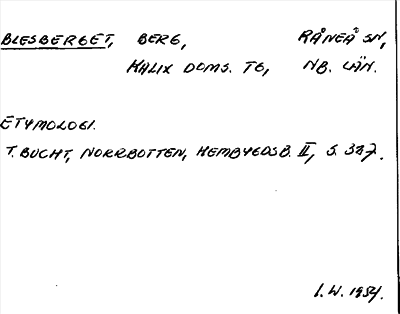 BLESBERGET, BERG, RÅNEÅ SN,
KALIX DOMS. TG, NB. LÄN.
ETYMOLOGI.
T. BUCHT, NORRBOTTEN, HEMBYGDSB. II, S. 327.
I. W. 1954.